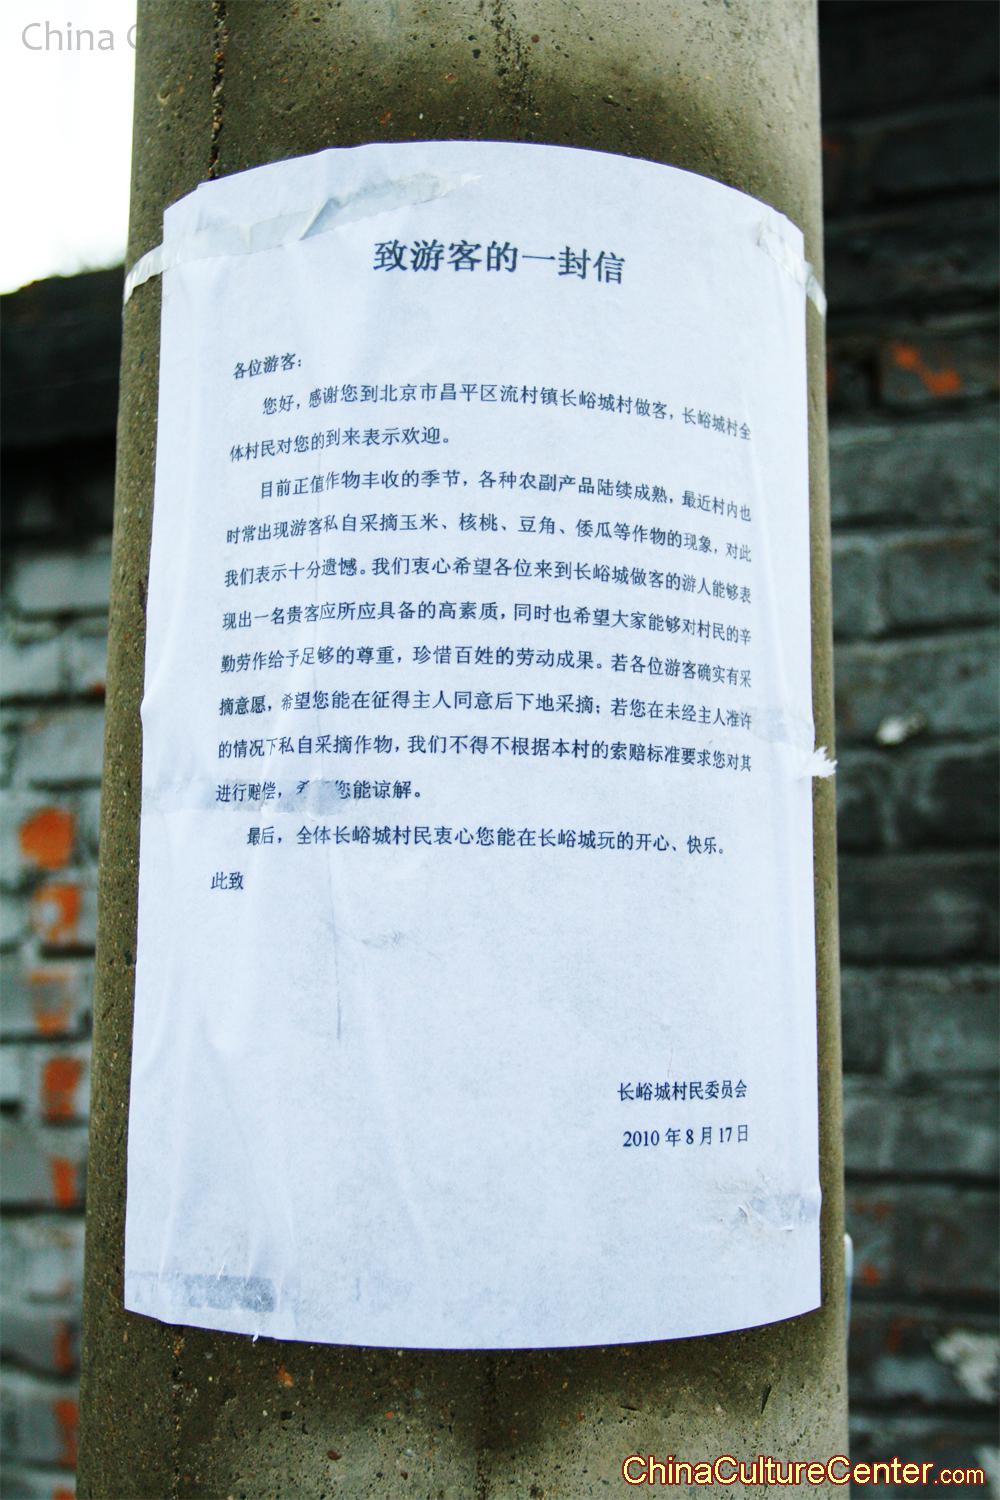 China C
致游客的一封信
各位游客：
您好，感谢您到北京市昌平区流村镇长峪城村做客，长峪城村全
体村民对您的到来表示欢迎。
目前正值作物丰收的季节，各种农副产品陆续成熟，最近村内也
时常出现游客私自采摘玉米、核桃、豆角、倭瓜等作物的现象，对此
我们表示十分遗憾。我们衷心希望各位来到长峪城做客的游人能够表
现出一名贵客应所应具备的高素质，同时也希望大家能够对村民的辛
勤劳作给予足够的尊重，珍惜百姓的劳动成果。若各位游客确实有采
摘意愿，希望您能在征得主人同意后下地采摘；若您在未经主人准许
的情况下私自采摘作物，我们不得不根据本村的索赔标准要求您对其
进行赔偿，希 您能谅解。
最后，全体长峪城村民衷心您能在长峪城玩的开心、快乐。
此致
长峪城村民委员会
2010年8月17日
ChinaCultureCenter.com